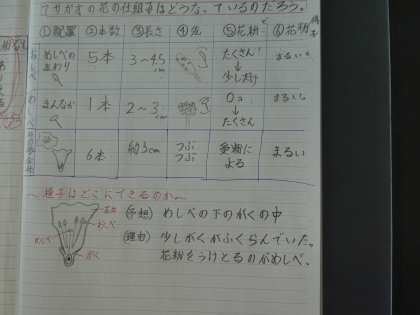 アサガオの花の仕組みはどうなっているのだろう。
①位置 ②本数 ③長さ ④先 ⑤花粉 ⑥花粉
めしべの
まわり
5本
3〜4.5
cm
たくさん!
↓
少しだけ
まるい
まんなか
1本
2〜3
cm
0こ
↓
たくさん
まるい
6本
約3cm
つぶ
つぶ
受粉に
よる
まるい
種子はどこにできるのか。
予想 めしべの下のがくの中
理由 少しがくがふくらんでいた。
花粉をうけとるのがめしべ。
おしべ
めしべ
がく